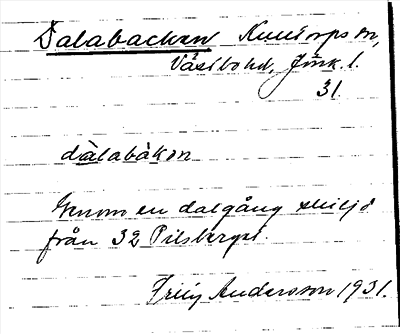 Dalabacken Kulltorps sn,
Västbo hd, Jönk. l.
31
dàlabàkən
Genom en dalgång skiljd
från 32 Pilsberget.
Andersson 1931.